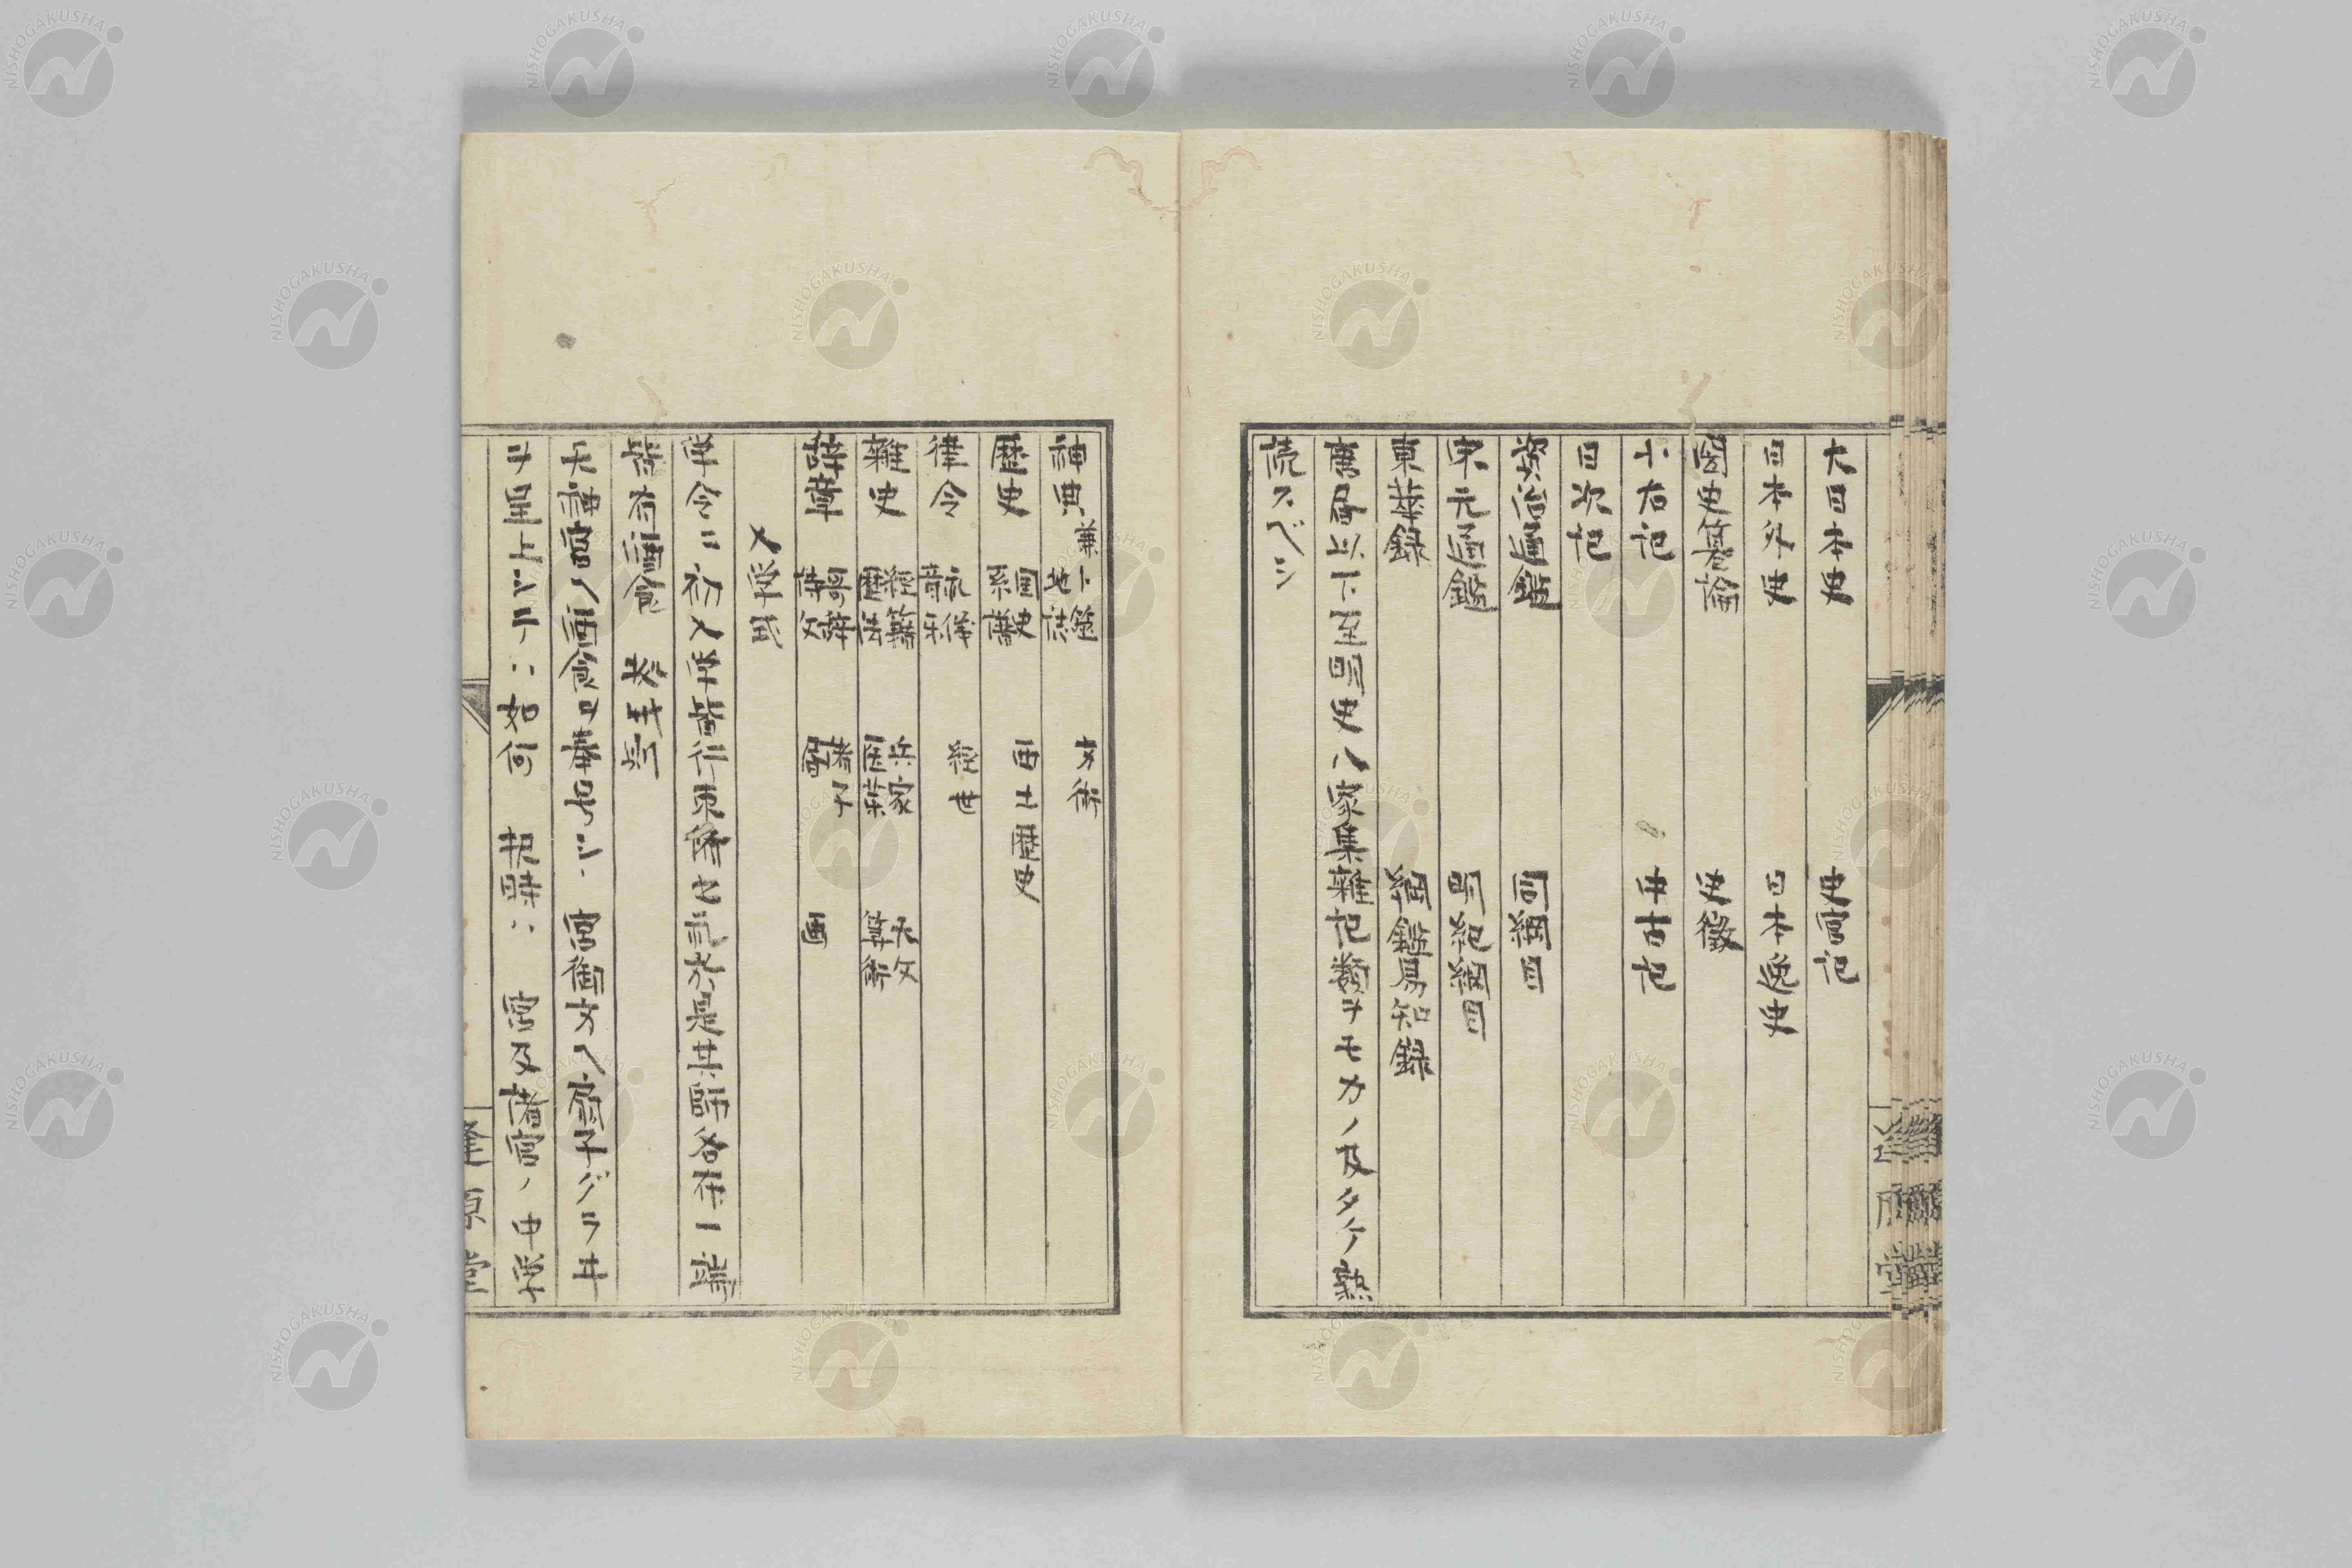 大日本史 史官記
日本外史 日本逸史
国史纂論 史徴
小右記 中古記
日次記
資治通鑑 同綱目
宋元通鑑 明紀綱目
東華録 綱鑑易知録
唐廣以下至明史ハ家集雑記類ヲモカノ及タケ熟
読スベシ
神典 兼卜筮 地誌 文術
歴史 国史 系譜 西土歴史
律令 礼儀 音釈 経世
雑史 経籍 歴法 兵家 医薬 天文 算術
辞章 哥辞 詩文 諸子 画
入学式
学令ニ初入学皆行束脩之礼於是其師各在一端
皆有酒食
天神宮ノ 宮御文ノ扇子
ヲ呈上 ハ如何 宮及諸官ノ中学
NISHOGAKUSHA